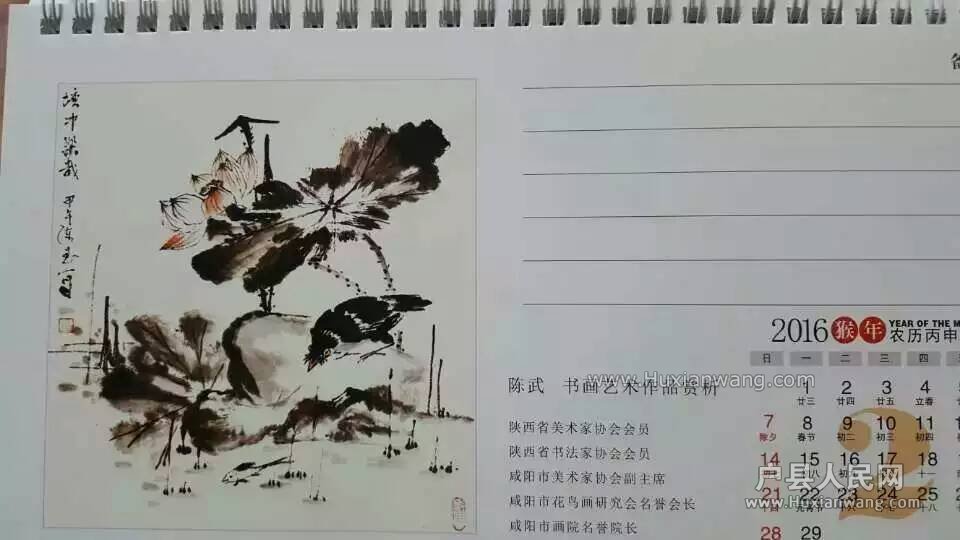 甲午陈武写
2016 猴年 YEAR OF THE M
农历丙申
日 一 二 三 四
1 2 3 4
廿三 廿四 廿五 立春
7 8 9 10 11
除夕 春节 初二 初三 初四
14 15 16 17 18
21 22 23 24 25
28 29
陈武 书画艺术作品赏析
陕西省美术家协会会员
陕西省书法家协会会员
咸阳市美术家协会副主席
咸阳市花鸟画研究会名誉会长
咸阳市画院名誉院长
www.Huxianwang.com
户县人民网
www.Huxianwang.com